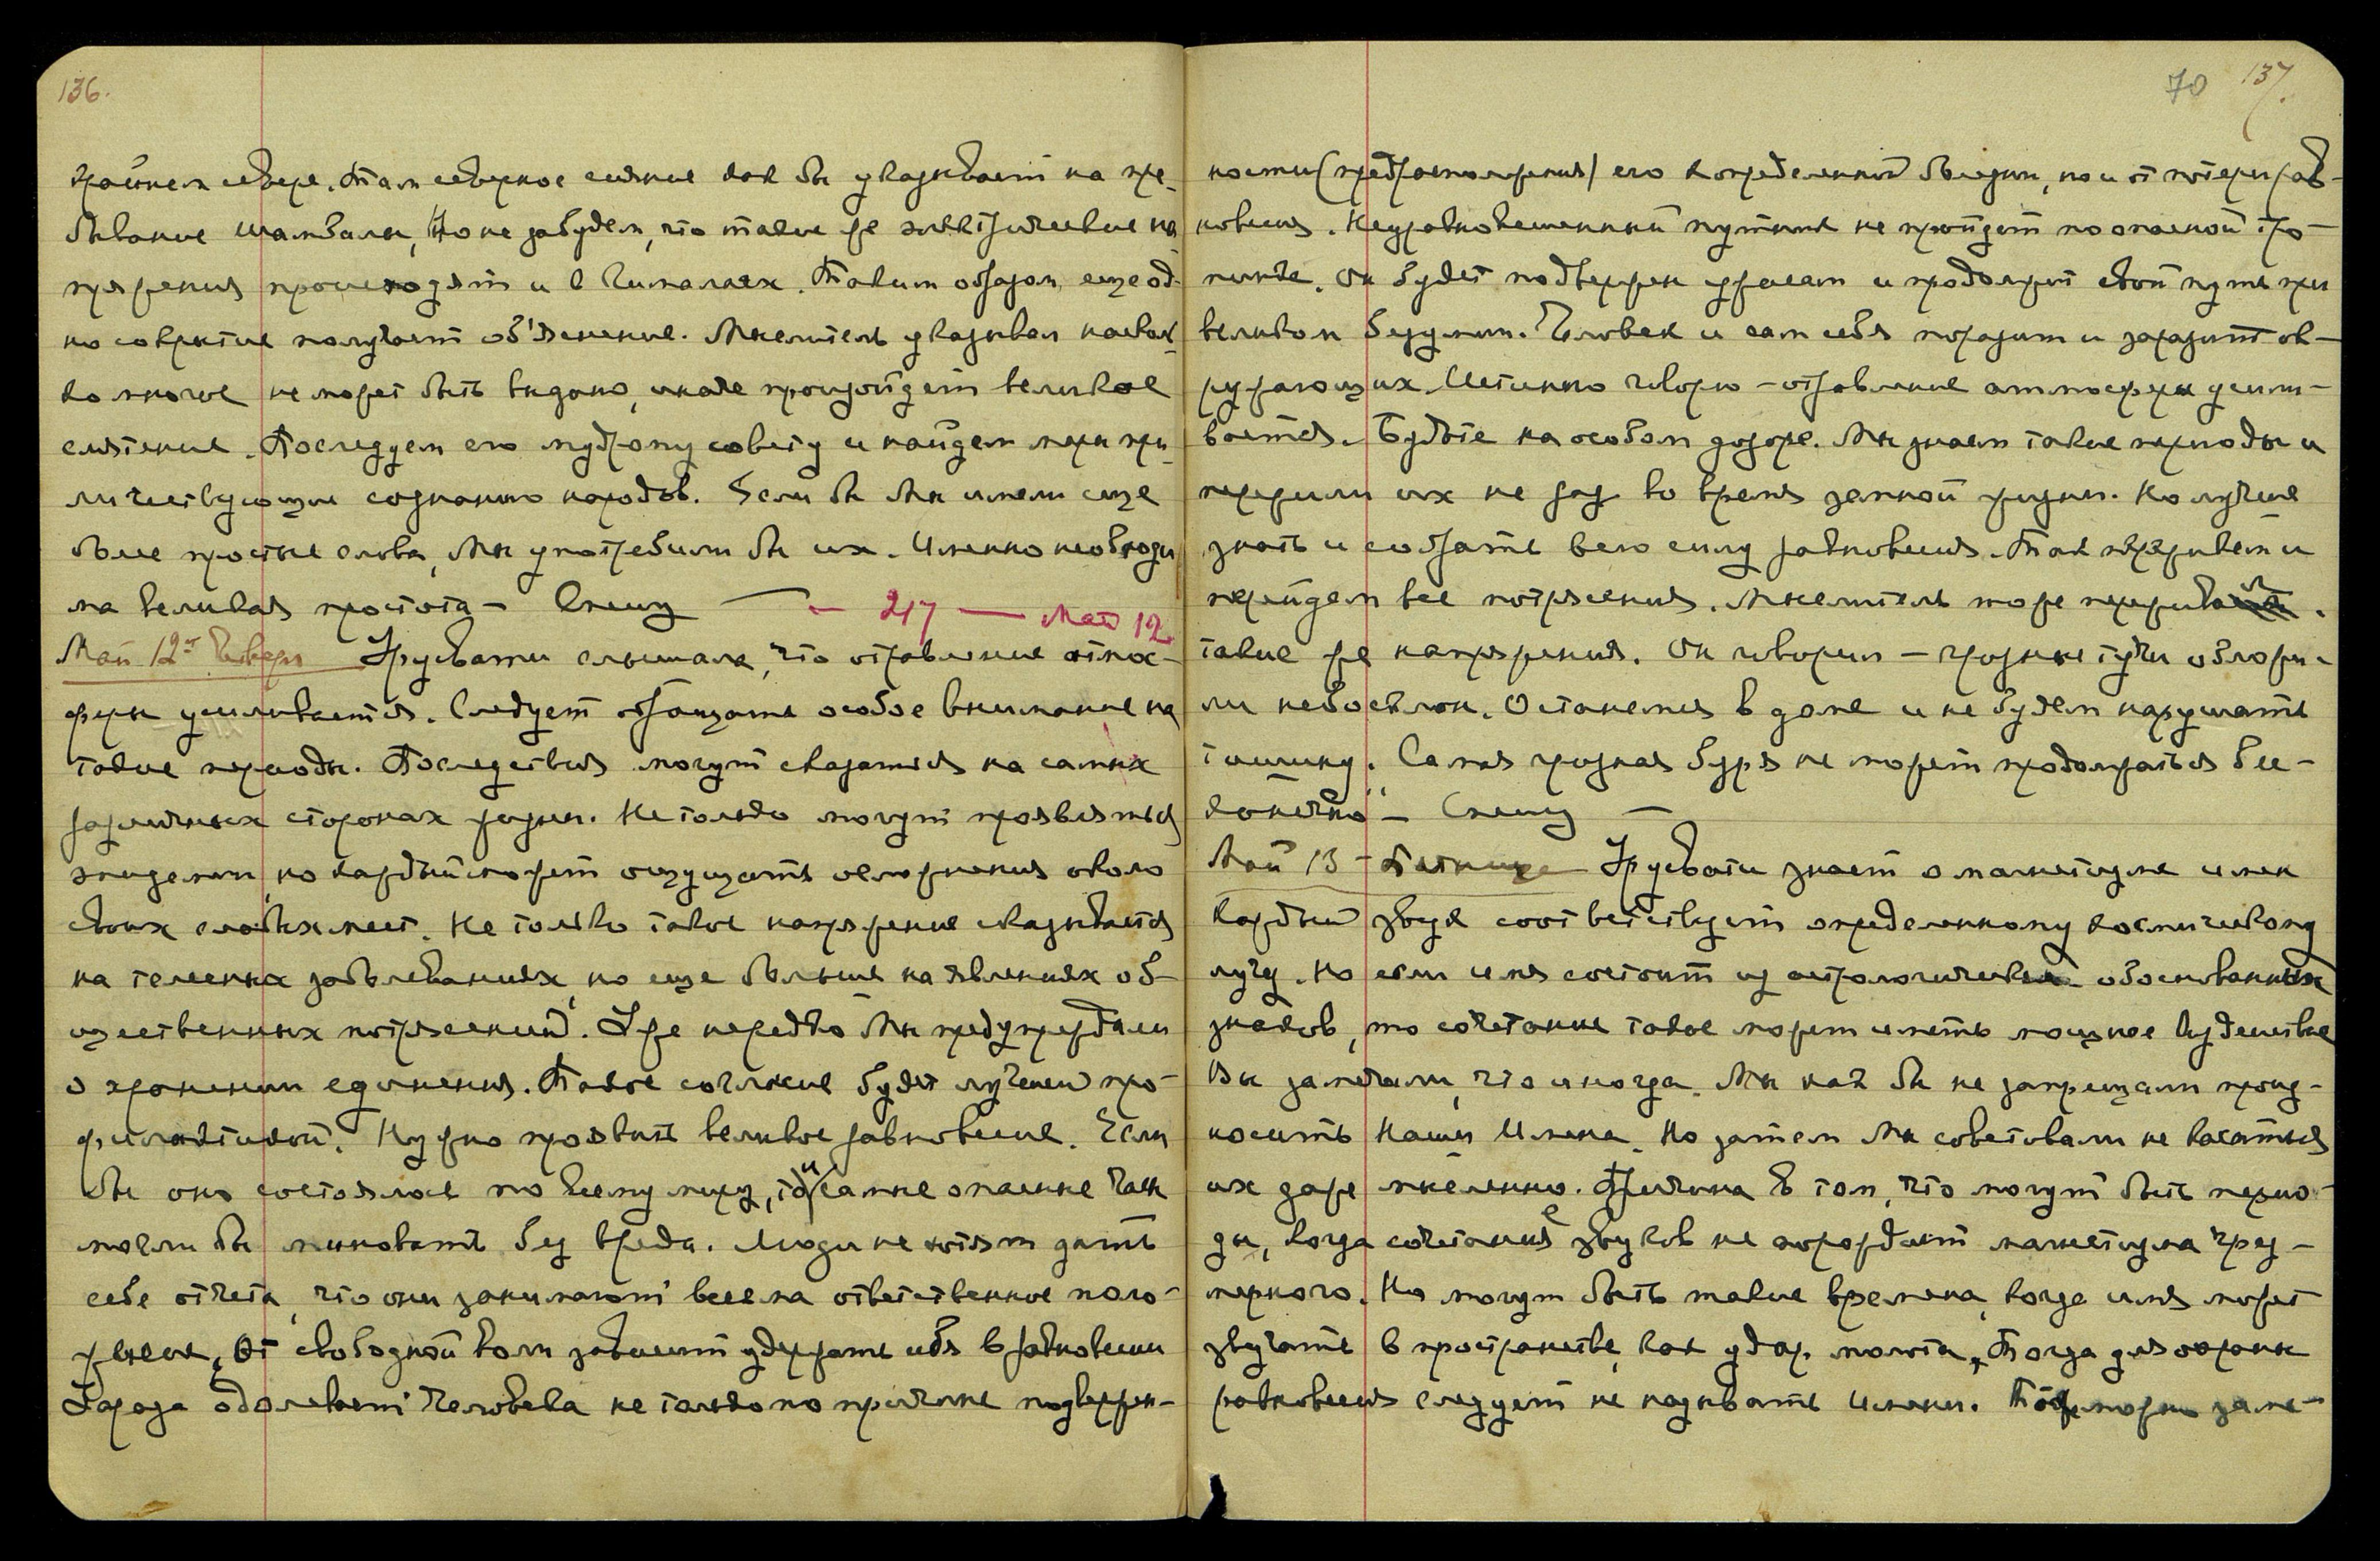 136.
крайнем севере. Там северное сияние как бы указывает на пре-
бывание Шамбалы, Но не забудем, что такие же электрические на-
пряжения происходят и в Гималаях. Таким образом, еще од-
но сокрытие получает об'яснение. Мыслитель указывал насколь-
ко многое не может быть выдано, иначе произойдет великое
смятение. Последуем его мудрому совету и найдем меры при-
личествующие сознанию народов. Если бы Мы имели еще
более простые слова, Мы употребили бы их. Именно необходи-
ма великая простота – Спешу — – 217 — Май 12
Май 12ое Четверг Урусвати слышала, что отравление атмос-
феры усиливается. Следует обращать особое внимание на
такие периоды. Последствия могут сказаться на самых
различных сторонах жизни. Не только могут проявляться
эпидемии, но каждый может ощущать осложнения около
своих слабых мест. Не только такое напряжение сказывается
на телесных заболеваниях, но еще больше на явлениях об-
щественных потрясений. Уже нередко Мы предупреждали
о хранении единения. Такое согласие будет лучшей про-
филактикой. Нужно проявить великое равновесие. Если
бы оно состоялось по всему миру, то и самые опасные часы
могли бы миновать без вреда. Люди не хотят дать
себе отчета, что они занимают весьма ответственное поло-
жение, От свободной воли зависит удержать себя в равновесии
Зараза одолевает человека не только по причине подвержен-
70 137.
ности (предрасположения) его к определенной болезни, но и от потери рав-
новесия. Неуравновешенный путник не пройдет по опасной тро-
пинке. Он будет подвержен ужасам и продолжит свой путь при
великом безумии. Человек и сам себя поразит и заразит ок-
ружающих. Истинно говорю – отравление атмосферы усили-
вается. Будьте на особом дозоре. Мы знаем такие периоды и
пережили их не раз во время земной жизни. Но лучше
знать и собрать всю силу равновесия. Так переживем и
перейдем все потрясения. Мыслитель тоже переживал
такие же напряжения. Он говорил – грозные тучи обложи-
ли небосклон. Останемся в доме и не будем нарушать
тишину. Самая грозная буря не может продолжаться бес-
конечно" – Спешу –
Май 13 – Пятница Урусвати знает о магнетизме имен
Каждый звук соответствует определенному космическому
лучу. Но если имя состоит из астрологически обоснованных
знаков, то сочетание такое может иметь мощное воздействие
Вы замечали, что иногда Мы как бы не запрещали произ-
носить Наши Имена. Но затем Мы советовали не касаться
их даже мысленно. Причина в том, что могут быть перио-
ды, когда сочетание звуков не порождает магнетизма чрез-
мерного. Но могут быть такие времена, когда имя может
звучать в пространстве, как удар молота, Тогда для охраны
равновесия следует не называть Имени. Также можно заме-